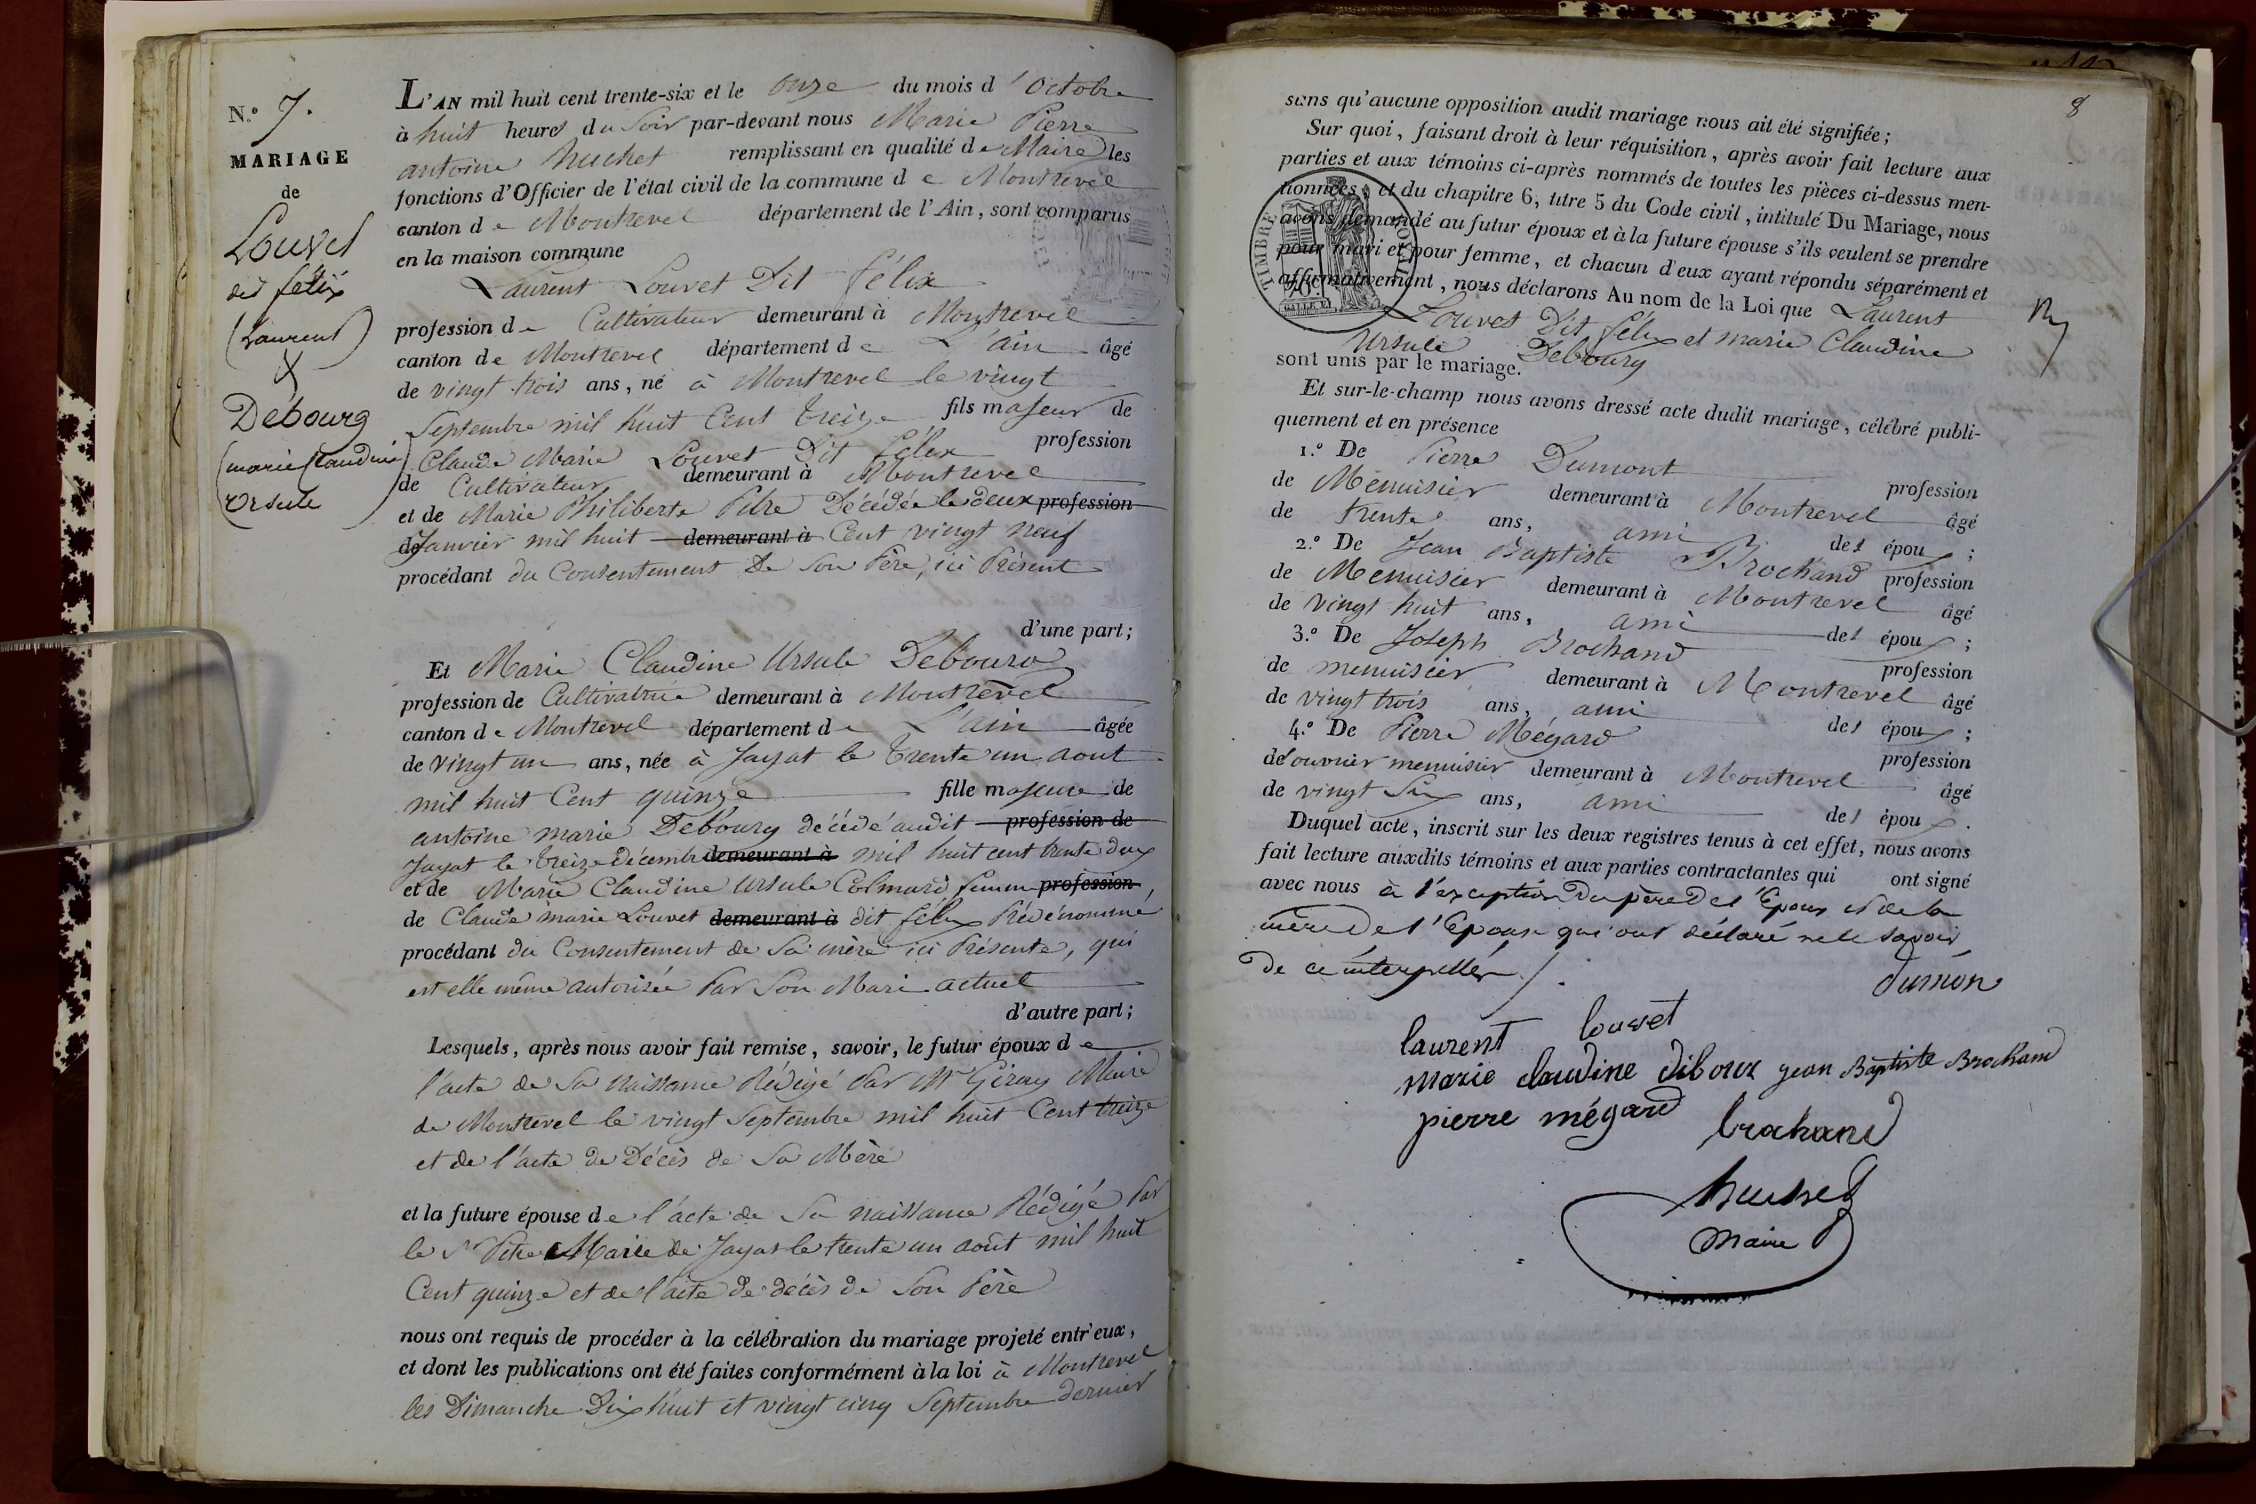 N.º 7.
MARIAGE
de
Louvet
dit félix
(Laurent)
&
Debourg
(marie Claudine
Ursule)
L'AN mil huit cent trente-six et le onze du mois d'Octobre
à huit heures du Soir par-devant nous Marie Pierre
antoine huchet remplissant en qualité de Maire les
fonctions d'Officier de l'état civil de la commune de Montrevel
canton de Montrevel département de l'Ain, sont comparus
en la maison commune
Laurent Louvet Dit félix
profession de Cultivateur demeurant à Montrevel
canton de Montrevel département de L'ain âgé
de vingt trois ans, né à Montrevel le vingt
Septembre mil huit Cent treize fils majeur de
Claude Marie Louvet Dit félix profession
de Cultivateur demeurant à Montrevel
et de Marie Philiberte Pitre Décédée le deux profession
de Janvier mil huit demeurant à Cent vingt neuf
procédant du Consentement De Son Père, ici Présent
d'une part;
Et Marie Claudine Ursule Debourg
profession de Cultivatrice demeurant à Montrevel
canton de Montrevel département de L'ain âgée
de vingt un ans, née à Jayat le trente un aout
mil huit Cent quinze fille majeure de
antoine marie Debourg décédé audit profession de
Jayat le treize décembre demeurant à mil huit cent trente deux
et de Marie Claudine Ursule Colmard femme profession
de Claude marie Louvet demeurant à dit félix Prédénommé
procédant du Consentement de Sa mère ici Présente, qui
est elle même autorisée Par Son Mari actuel
d'autre part;
Lesquels, après nous avoir fait remise, savoir, le futur époux de
l'acte de Sa Naissance Rédigé Par Mr Maire
de Montrevel le vingt Septembre mil huit Cent treize
et de l'acte de Décès de Sa Mère
et la future épouse de l'acte de Sa naissance Rédigé Par
le Sr Pitre Maire de Jayat le trente un août mil huit
Cent quinze et de l'acte de décès de Son Père
nous ont requis de procéder à la célébration du mariage projeté entr'eux,
et dont les publications ont été faites conformément à la loi à Montrevel
les Dimanche Dix huit et vingt cinq Septembre dernier
8
sans qu'aucune opposition audit mariage nous ait été signifiée;
Sur quoi, faisant droit à leur réquisition, après avoir fait lecture aux
parties et aux témoins ci-après nommés de toutes les pièces ci-dessus men-
tionnées, et du chapitre 6, titre 5 du Code civil, intitulé Du Mariage, nous
avons demandé au futur époux et à la future épouse s'ils veulent se prendre
pour mari et pour femme, et chacun d'eux ayant répondu séparément et
affirmativement, nous déclarons Au nom de la Loi que Laurent
Louvet Dit félix et marie Claudine
Ursule Debourg
sont unis par le mariage.
Et sur-le-champ nous avons dressé acte dudit mariage, célébré publi-
quement et en présence
1.º De Pierre Dumont profession
de Menuisier demeurant à Montrevel âgé
de trente ans, ami des époux;
2.º De Jean Baptiste Brochand profession
de Menuisier demeurant à Montrevel âgé
de vingt huit ans, ami des époux;
3.º De Joseph Brochand profession
de menuisier demeurant à Montrevel âgé
de vingt trois ans, ami des époux;
4.º De Pierre Mégard profession
de ouvrier menuisier demeurant à Montrevel âgé
de vingt Six ans, ami des époux.
Duquel acte, inscrit sur les deux registres tenus à cet effet, nous avons
fait lecture auxdits témoins et aux parties contractantes qui ont signé
avec nous à l'exception du père de l'Epoux et de la
mère de l'Epouse qui ont déclaré ne le savoir
de ce interpellés /.
dumon
laurent louvet
marie claudine dibour jean Baptiste Brochand
pierre mégard brochand
huchet
Maire
TIMBRE ROYAL